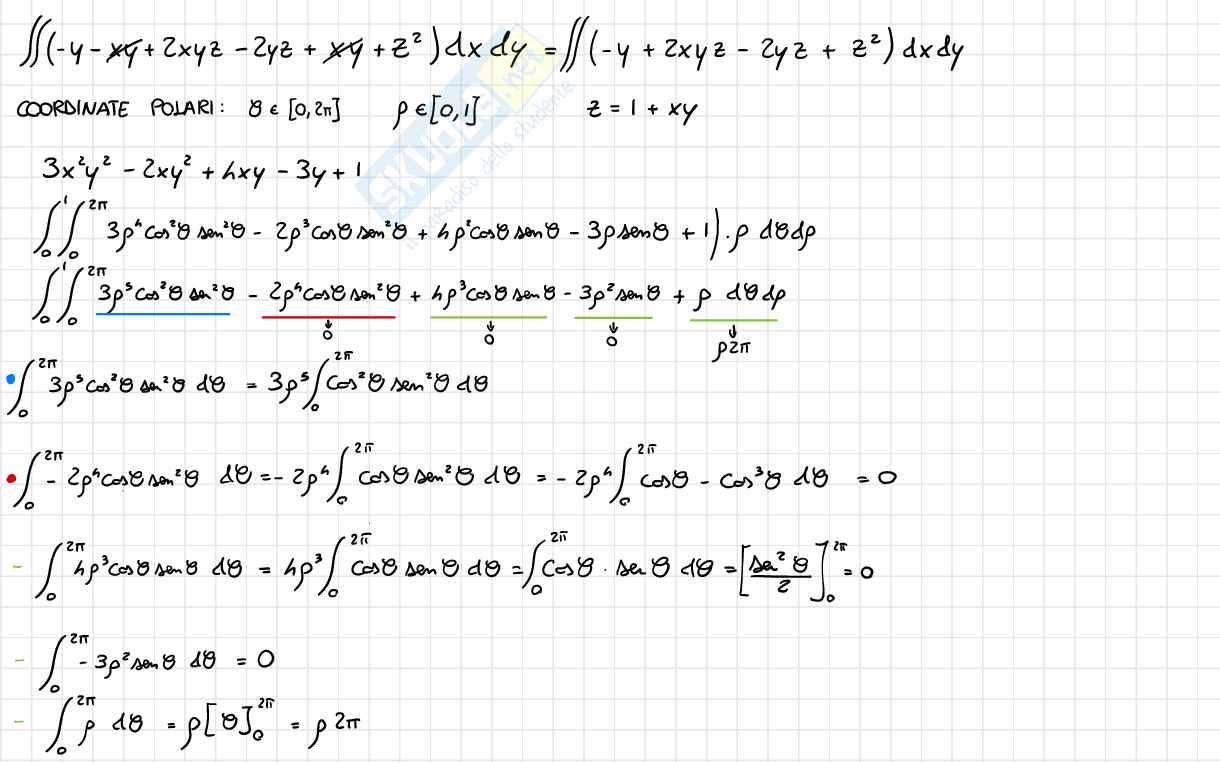 ∬(-y - xy + 2xyz - 2yz + xy + z²) dx dy = ∬(-y + 2xyz - 2yz + z²) dx dy
COORDINATE POLARI: θ ∈ [0,2π] ρ ∈ [0,1] z = 1 + xy
3x²y² - 2xy² + 4xy - 3y + 1
∫₀¹∫₀²π 3ρ⁴cos²θ sen²θ - 2ρ³cosθ sen²θ + 4ρ²cosθ senθ - 3ρ senθ + 1) · ρ dθdρ
∫₀¹∫₀²π 3ρ⁵cos²θ sen²θ - 2ρ⁴cosθ sen²θ + 4ρ³cosθ senθ - 3ρ² senθ + ρ dθdρ
↓ 0 ↓ 0 ↓ 0 ↓ ρ2π
∫₀²π 3ρ⁵cos²θ sen²θ dθ = 3ρ⁵∫₀²π cos²θ sen²θ dθ
∫₀²π - 2ρ⁴cosθ sen²θ dθ = - 2ρ⁴∫₀²π cosθ sen²θ dθ = - 2ρ⁴∫₀²π cosθ - cos³θ dθ = 0
- ∫₀²π 4ρ³cosθ senθ dθ = 4ρ³∫₀²π cosθ senθ dθ = ∫₀²π cosθ · senθ dθ = [sen²θ/2]₀²π = 0
- ∫₀²π - 3ρ² senθ dθ = 0
- ∫₀²π ρ dθ = ρ[θ]₀²π = ρ 2π
SKUOLA.net
il paradiso dello studente